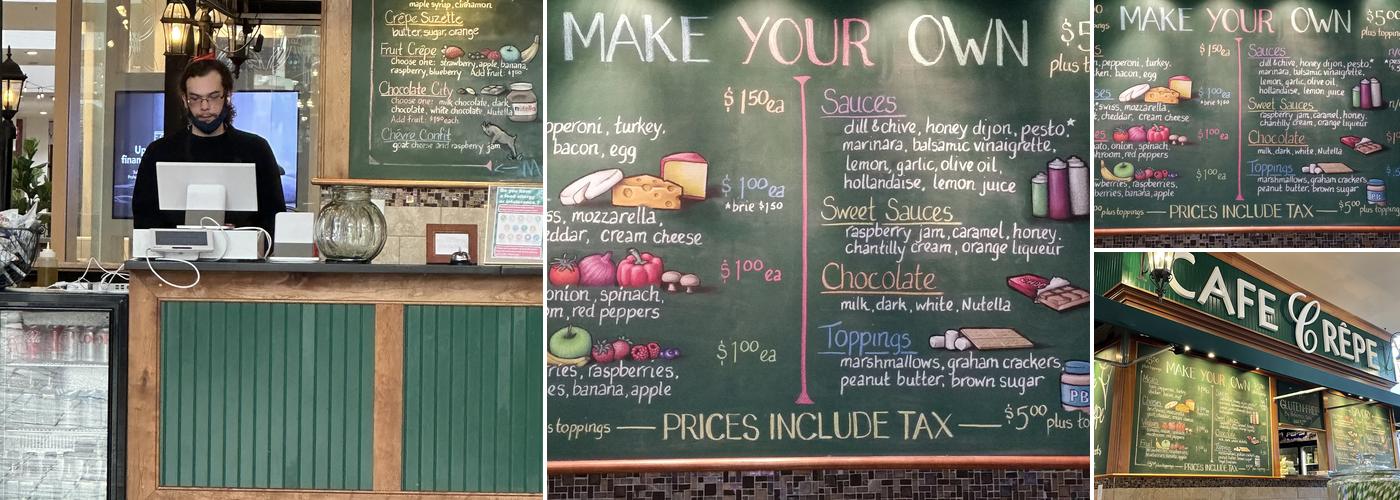 maple syrup, cinnamon
Crêpe Suzette
butter, sugar, orange
Fruit Crêpe
Choose one: strawberry, apple, banana,
raspberry, blueberry Add fruit: $1.50
Chocolate City
choose one: milk chocolate, dark
chocolate, white chocolate, Nutella
Add fruit: $1.50 each
nutella
Chévre Confit
goat cheese and raspberry jam
Do you have
a food allergy
MAKE YOUR OWN
$5
plus t
pperoni, turkey.
bacon, egg
$1.50ea
ss, mozzarella,
eddar, cream cheese
$1.00ea
*brie $1.50
onion, spinach,
m, red peppers
$1.00ea
ries, raspberries,
es, banana, apple
$1.00ea
Sauces
dill & chive, honey dijon, pesto*
marinara, balsamic vinaigrette,
lemon, garlic, olive oil,
hollandaise, lemon juice
Sweet Sauces
raspberry jam, caramel, honey,
chantilly cream, orange liqueur
Chocolate
milk, dark, white, Nutella
Toppings
marshmallows, graham crackers,
peanut butter, brown sugar
PB
s toppings — PRICES INCLUDE TAX — $5.00 plus to
MAKE YOUR OWN
$5.00
plus toppin
pepperoni, turkey.
ken, bacon, egg
$1.50ea
swiss, mozzarella,
cheddar, cream cheese
$1.00ea
*brie $1.50
ato, onion, spinach,
hroom, red peppers
$1.00ea
wberries, raspberries,
berries, banana, apple
$1.00ea
Sauces
dill & chive, honey dijon, pesto*
marinara, balsamic vinaigrette,
lemon, garlic, olive oil,
hollandaise, lemon juice
Sweet Sauces
raspberry jam, caramel, honey,
chantilly cream, orange liqueur
Chocolate
milk, dark, white, Nutella
Toppings
marshmallows, graham crackers,
peanut butter, brown sugar
PB
plus toppings — PRICES INCLUDE TAX — $5.00 plus toppin
CAFE CRÊPE
MAKE YOUR OWN
GLUTEN-FREE
PRICES INCLUDE TAX